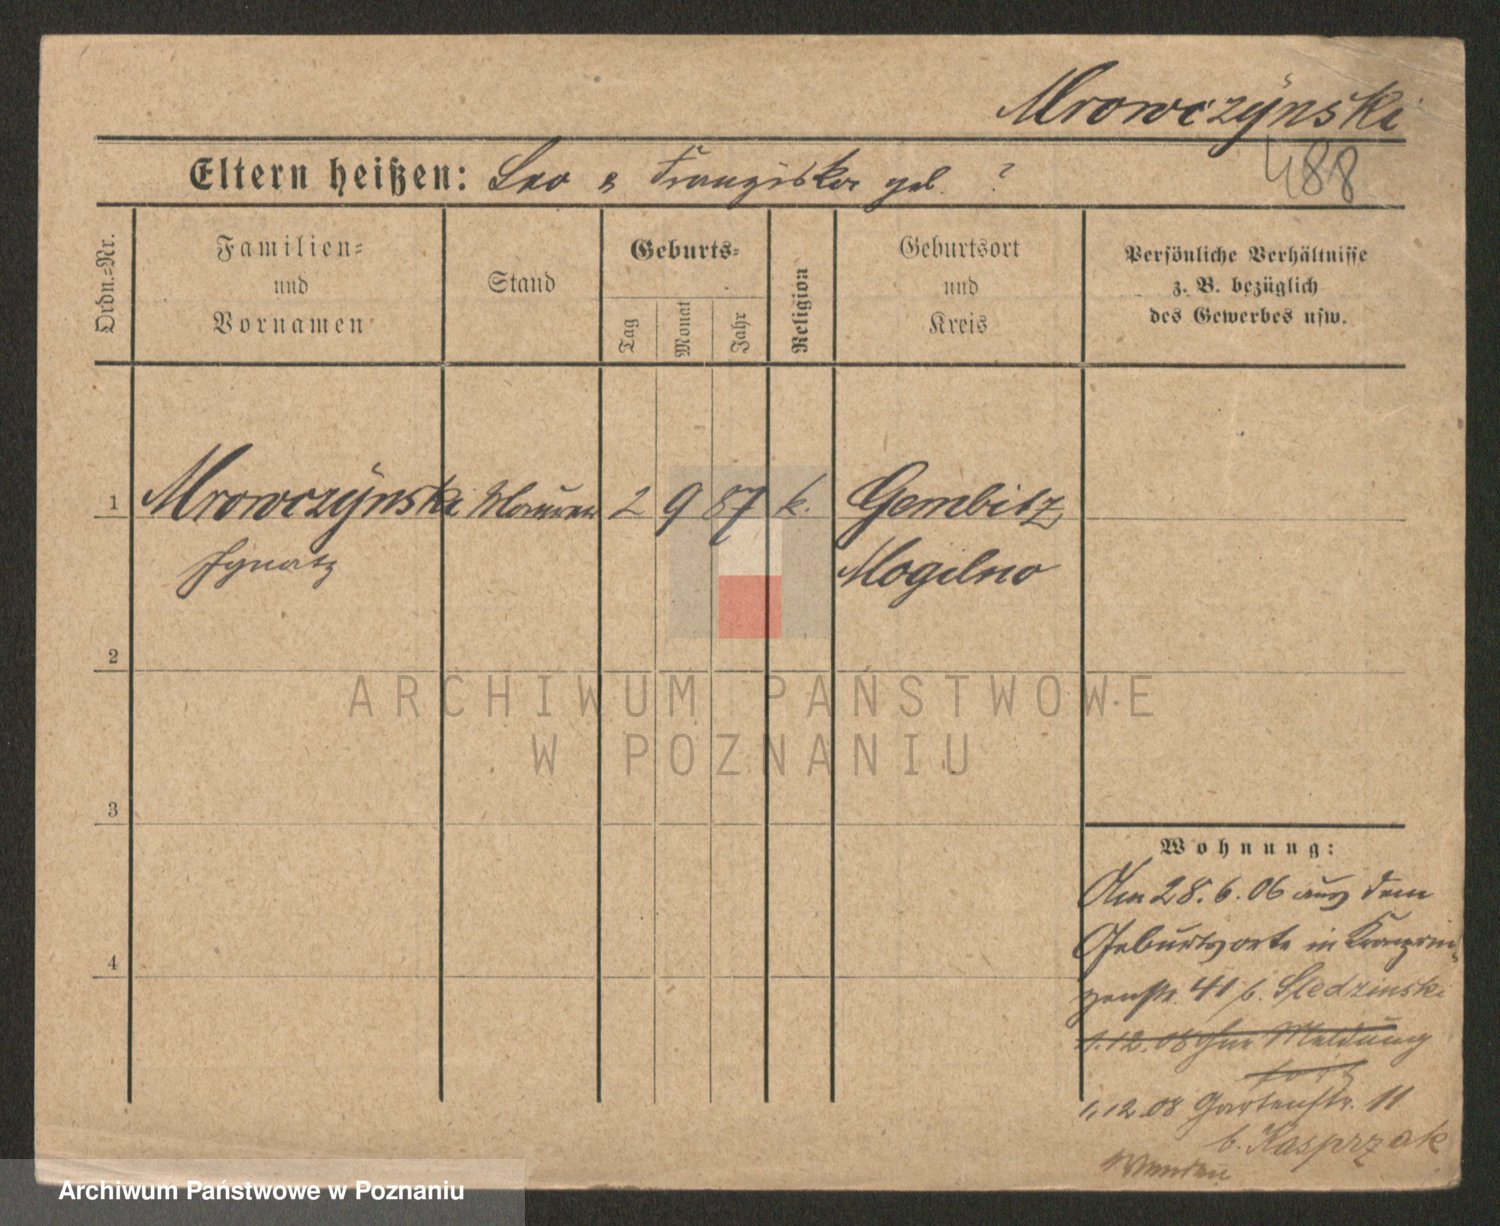 Mrowczÿnski
488
Eltern heißen: Leo & Franziska geb. ?
Ordn.=Nr.
Familien=
und
Vornamen
Stand
Geburts=
Tag
Monat
Jahr
Religion
Geburtsort
und
Kreis
Persönliche Verhältnisse
z. B. bezüglich
des Gewerbes usw.
1 Mrowczÿnski Maurer 2 9 87 k. Gembitz
Ignatz Mogilno
2
3
4
Wohnung:
Am 28.6.06 aus dem
Geburtsorte in Kronprin-
zenstr. 41 b. Sledzinski
1.12.08 Ohne Meldung
fort
1.12.08 Gartenstr. 11
b. Kasprzak
ARCHIWUM PAŃSTWOWE
W POZNANIU
Archiwum Państwowe w Poznaniu